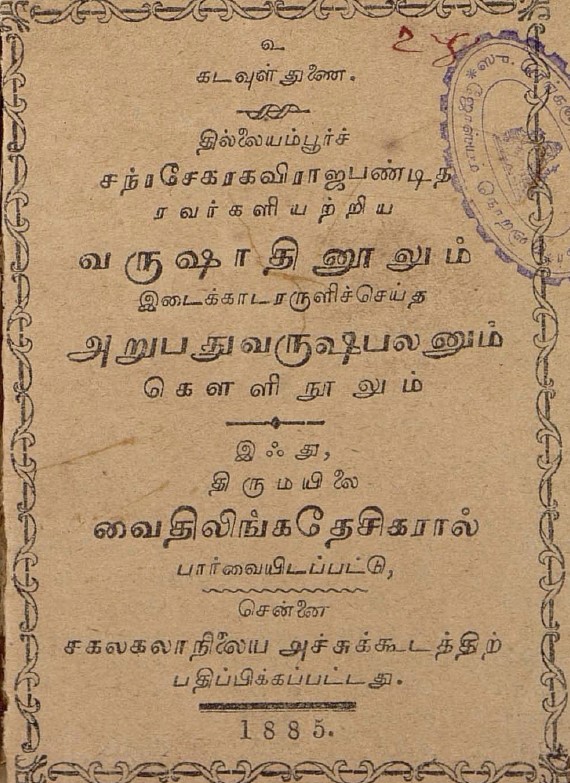 உ
கடவுள் துணை.
தில்லையம்பூர்ச்
சந்ரசேகரகவிராஜபண்டித
ரவர்களியற்றிய
வருஷாதி னூலும்
இடைக்காடரருளிச்செய்த
அறுபதுவருஷபலனும்
கௌளிநூலும்
இஃது,
திருமயிலை
வைதிலிங்கதேசிகரால்
பார்வையிடப்பட்டு,
சென்னை
சகலகலாநிலைய அச்சுக்கூடத்திற்
பதிப்பிக்கப்பட்டது.
1885.